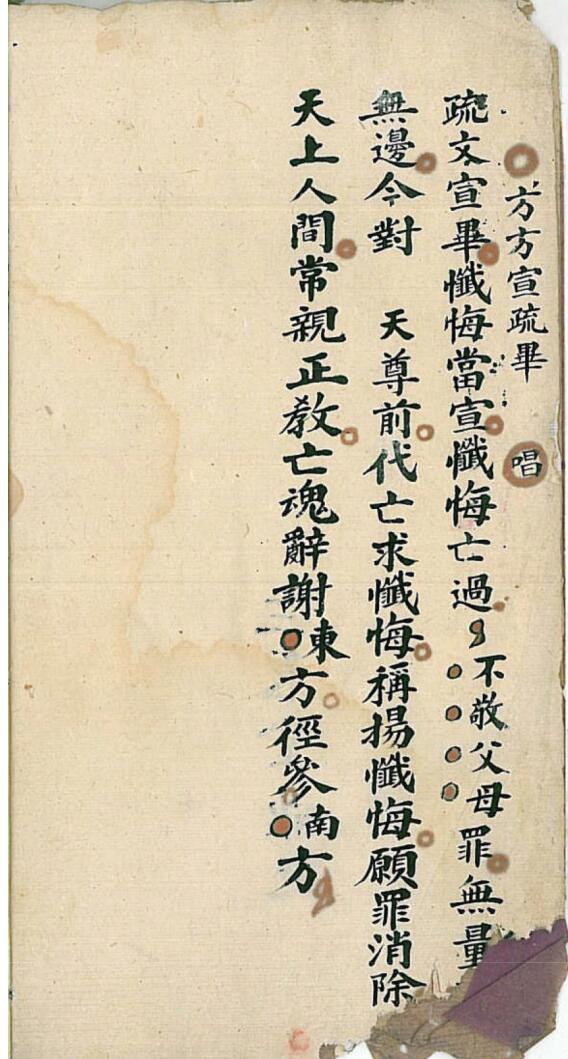 方方宣疏畢 唱
疏文宣畢懺悔當宣懺悔亡過不敬父母罪無量
無邊今對 天尊前代亡求懺悔稱揚懺悔願罪消除
天上人間常親正教亡魂辭謝東方徑參南方